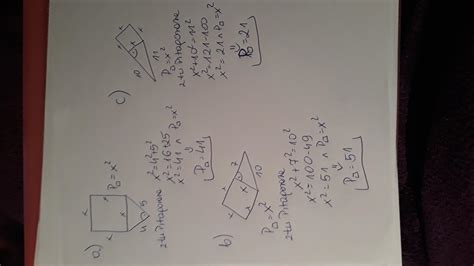 a)
x
x
x
P□ = x²
4
5
z tw. Pitagorasa
x² = 4² + 5²
x² = 16 + 25
x² = 41 ∧ P□ = x²
⇓
P□ = 41
b)
x
x
7
10
P□ = x²
z tw. Pitagorasa
x² + 7² = 10²
x² = 100 - 49
x² = 51 ∧ P□ = x²
⇓
P□ = 51
c)
x
x
10
11
P□ = x²
z tw. Pitagorasa
x² + 10² = 11²
x² = 121 - 100
x² = 21 ∧ P□ = x²
⇓
P□ = 21